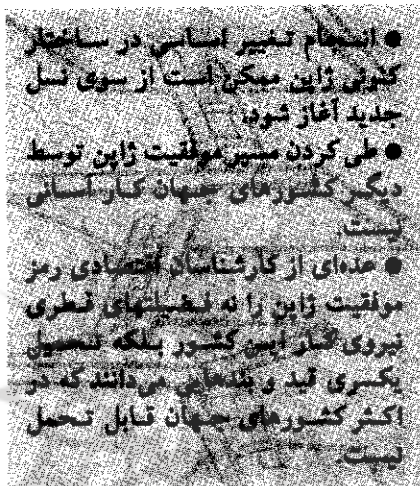 ● انسجام تغییر اساسی در ساختار
کنونی ژاپن ممکن است از سوی نسل
جدید آغاز شود.
● طی کردن مسیر موفقیت ژاپن توسط
دیگر کشورهای جهان کار آسانی
نیست.
● عده‌ای از کارشناسان اقتصادی رمز
موفقیت ژاپن را نه فضیلتهای فطری
نیروی کار این کشور بلکه تحمیل
یکسری قید و بندهایی می‌دانند که در
اکثر کشورهای جهان قابل تحمل
نیست.